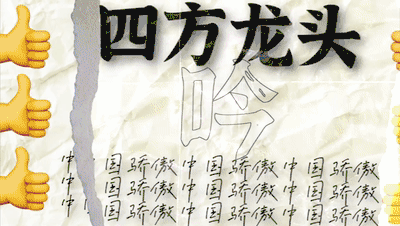 四方龙头
吟
中国骄傲中国骄傲中国骄傲
中国骄傲中国骄傲中国骄傲
中国骄傲中国骄傲中国骄傲